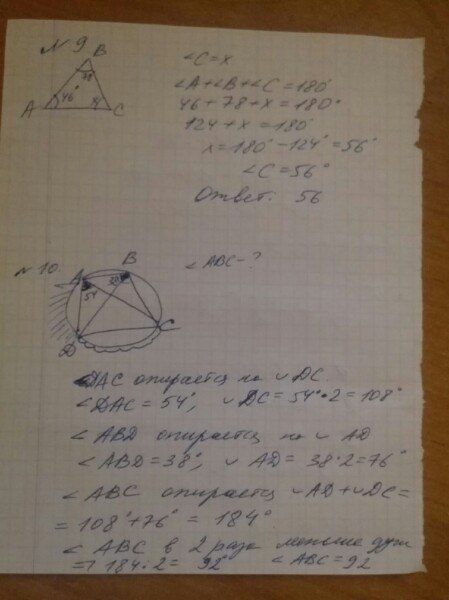 № 9
B
78
∠C = x
∠A+∠B+∠C = 180°
A 46° x C
46 + 78 + x = 180°
124 + x = 180°
x = 180° − 124° = 56°
∠C = 56°
Ответ: 56
№ 10.
∠ABC − ?
A B
54
D C
∠DAC опирается на ∪ DC.
∠DAC = 54°, ∪ DC = 54°·2 = 108°
∠ABD опирается на ∪ AD
∠ABD = 38°, ∪ AD = 38·2 = 76°
∠ABC опирается ∪ AD + ∪ DC =
= 108° + 76° = 184°
∠ABC в 2 раза меньше дуги
=> 184·2 = 92° ∠ABC = 92